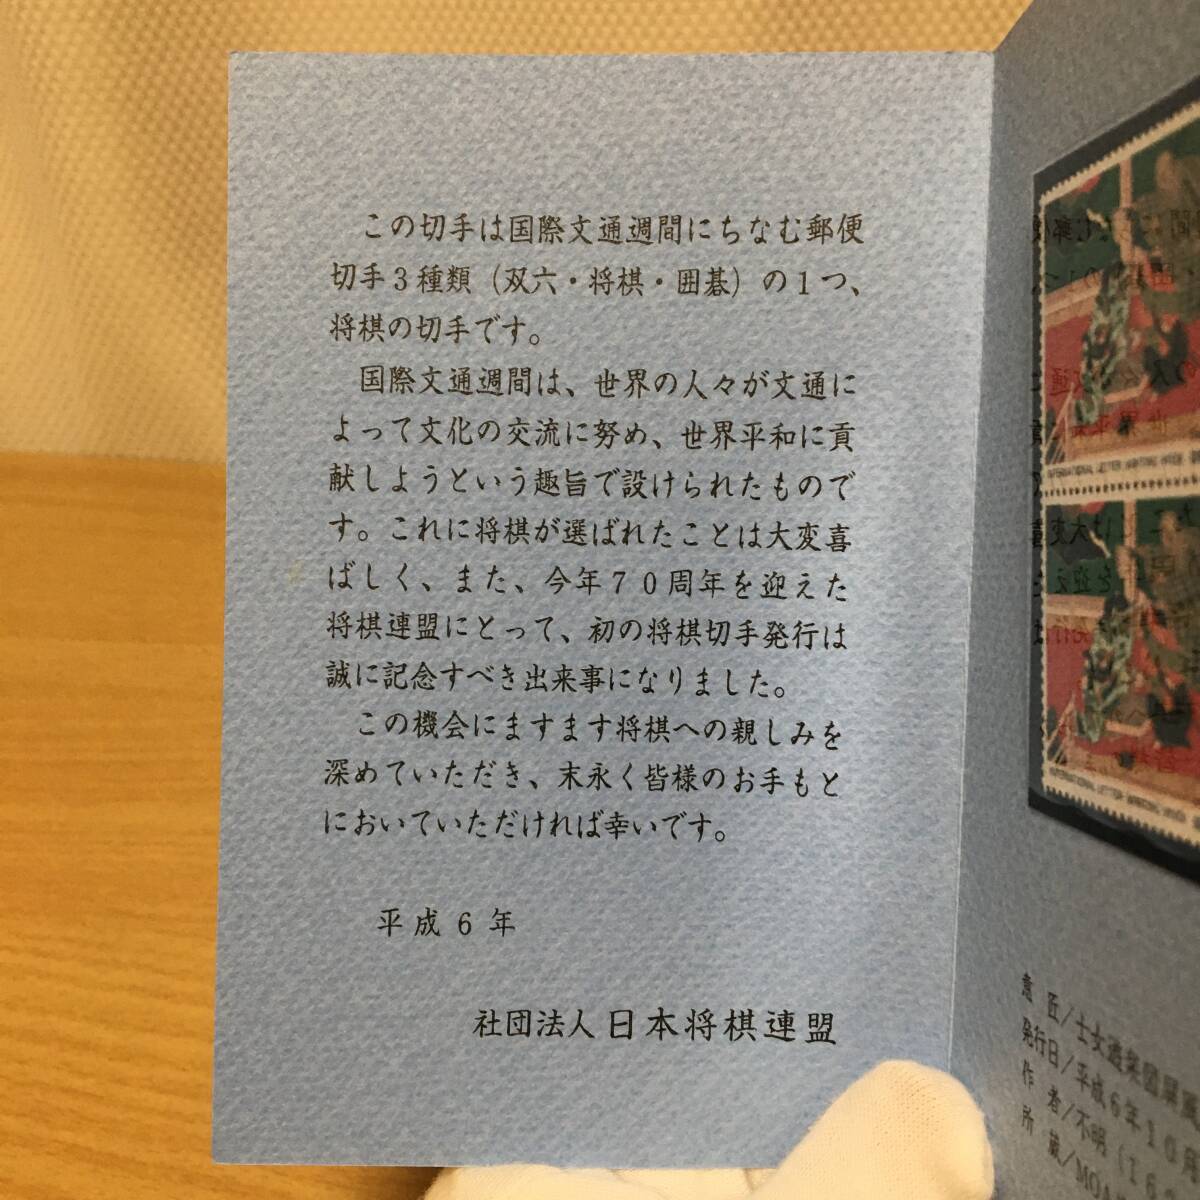 この切手は国際文通週間にちなむ郵便
切手３種類（双六・将棋・囲碁）の１つ、
将棋の切手です。
国際文通週間は、世界の人々が文通に
よって文化の交流に努め、世界平和に貢
献しようという趣旨で設けられたもので
す。これに将棋が選ばれたことは大変喜
ばしく、また、今年７０周年を迎えた
将棋連盟にとって、初の将棋切手発行は
誠に記念すべき出来事になりました。
この機会にますます将棋への親しみを
深めていただき、末永く皆様のお手もと
においていただければ幸いです。
平成６年
社団法人日本将棋連盟
意匠／士女遊楽図屏風
発行日／平成６年１０月
作者／不明（１６
所蔵／MOA